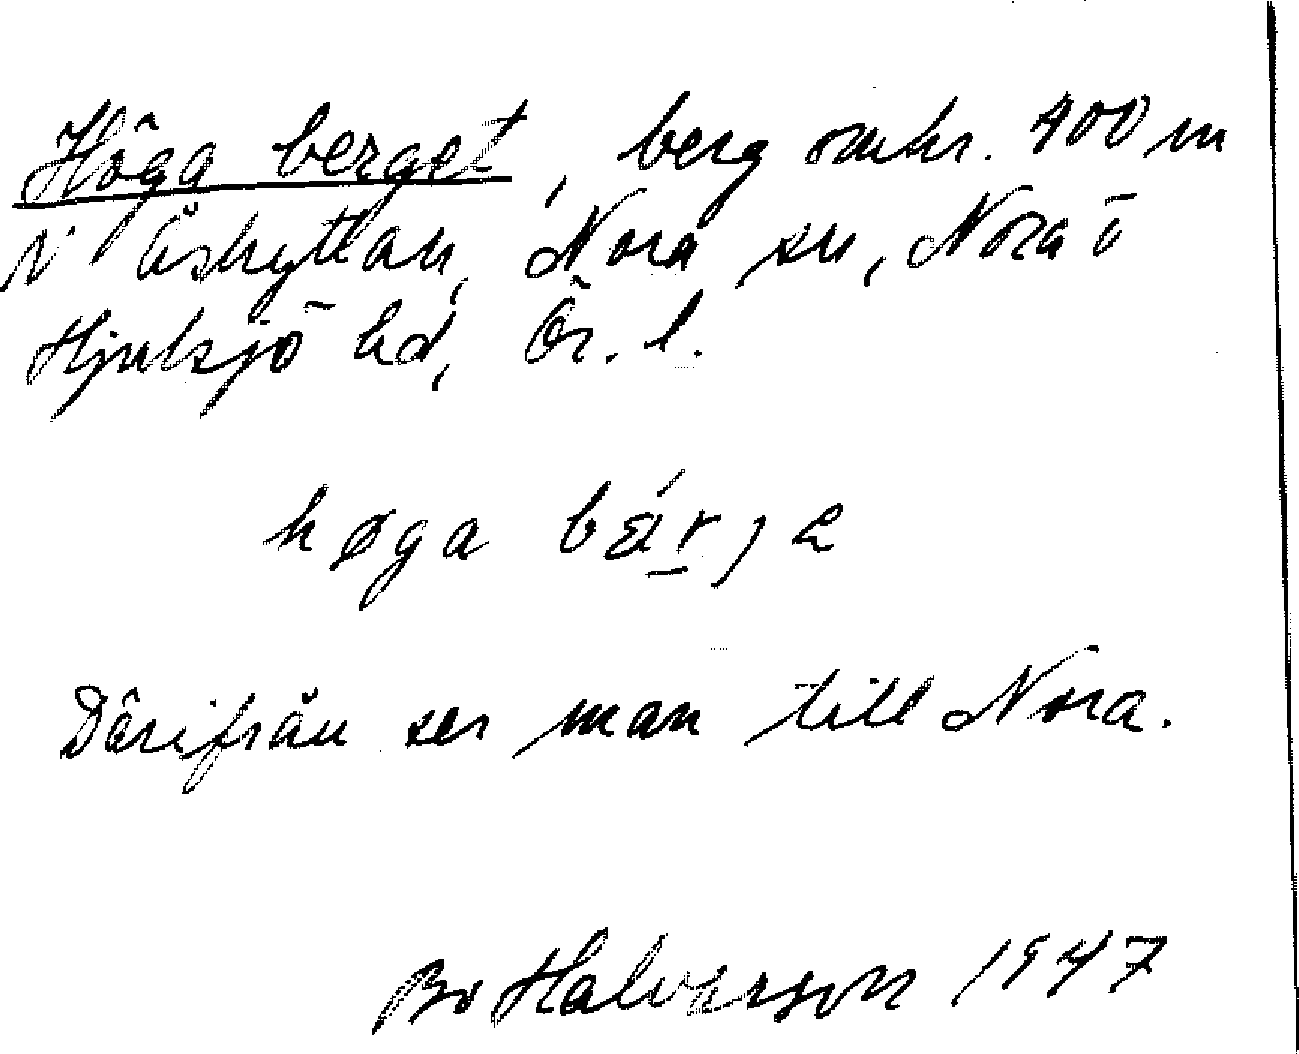 Höga berget, berg omkr. 400 m
N Åshyttan, Nora sn, Nora o
Hjulsjö hd, Ör. l.
høga
Därifrån ser man till Nora.
Bo Halvarson 1947